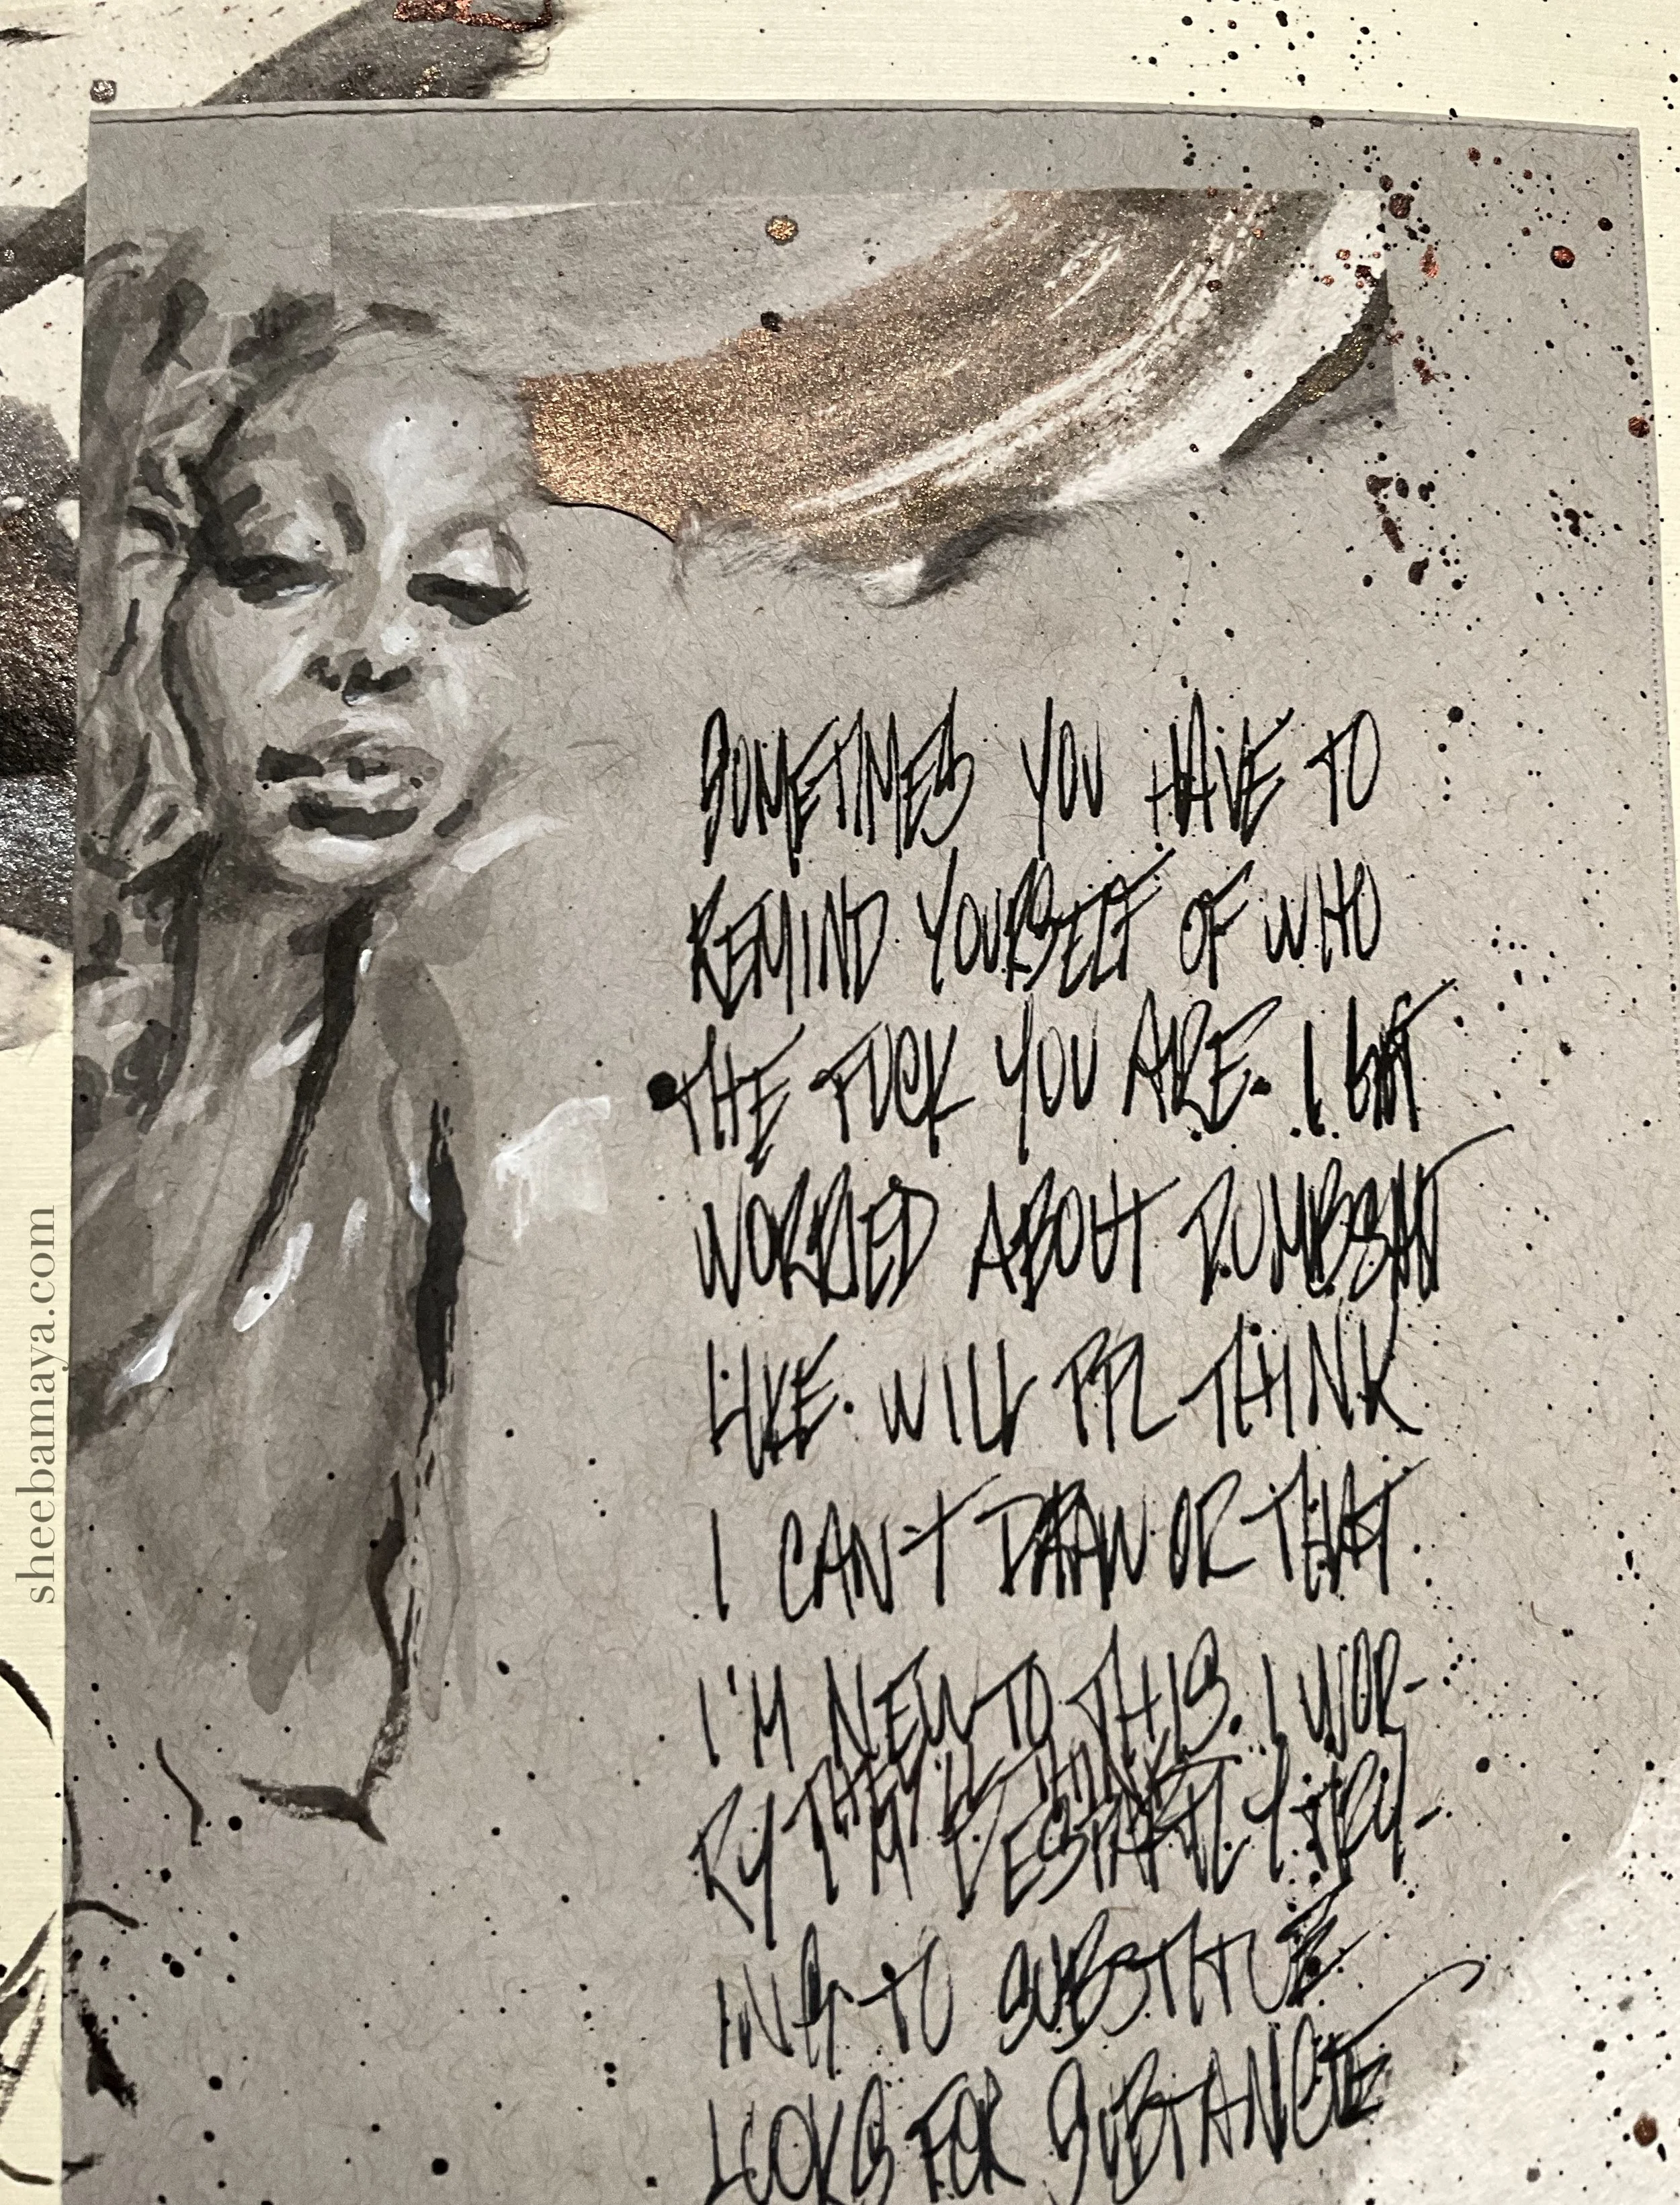 SOMETIMES YOU HAVE TO
REMIND YOURSELF OF WHO
THE FUCK YOU ARE. I GET
WORRIED ABOUT DUMBSHIT
LIKE. WILL PPL THINK
I CAN'T DRAW OR THAT
I'M NEW TO THIS. I WOR-
RY THEY'LL THINK
I'M DESPARTLY TRY-
ING TO SUBSTITUE
LOOKS FOR SUBSTANCE
sheebamaya.com